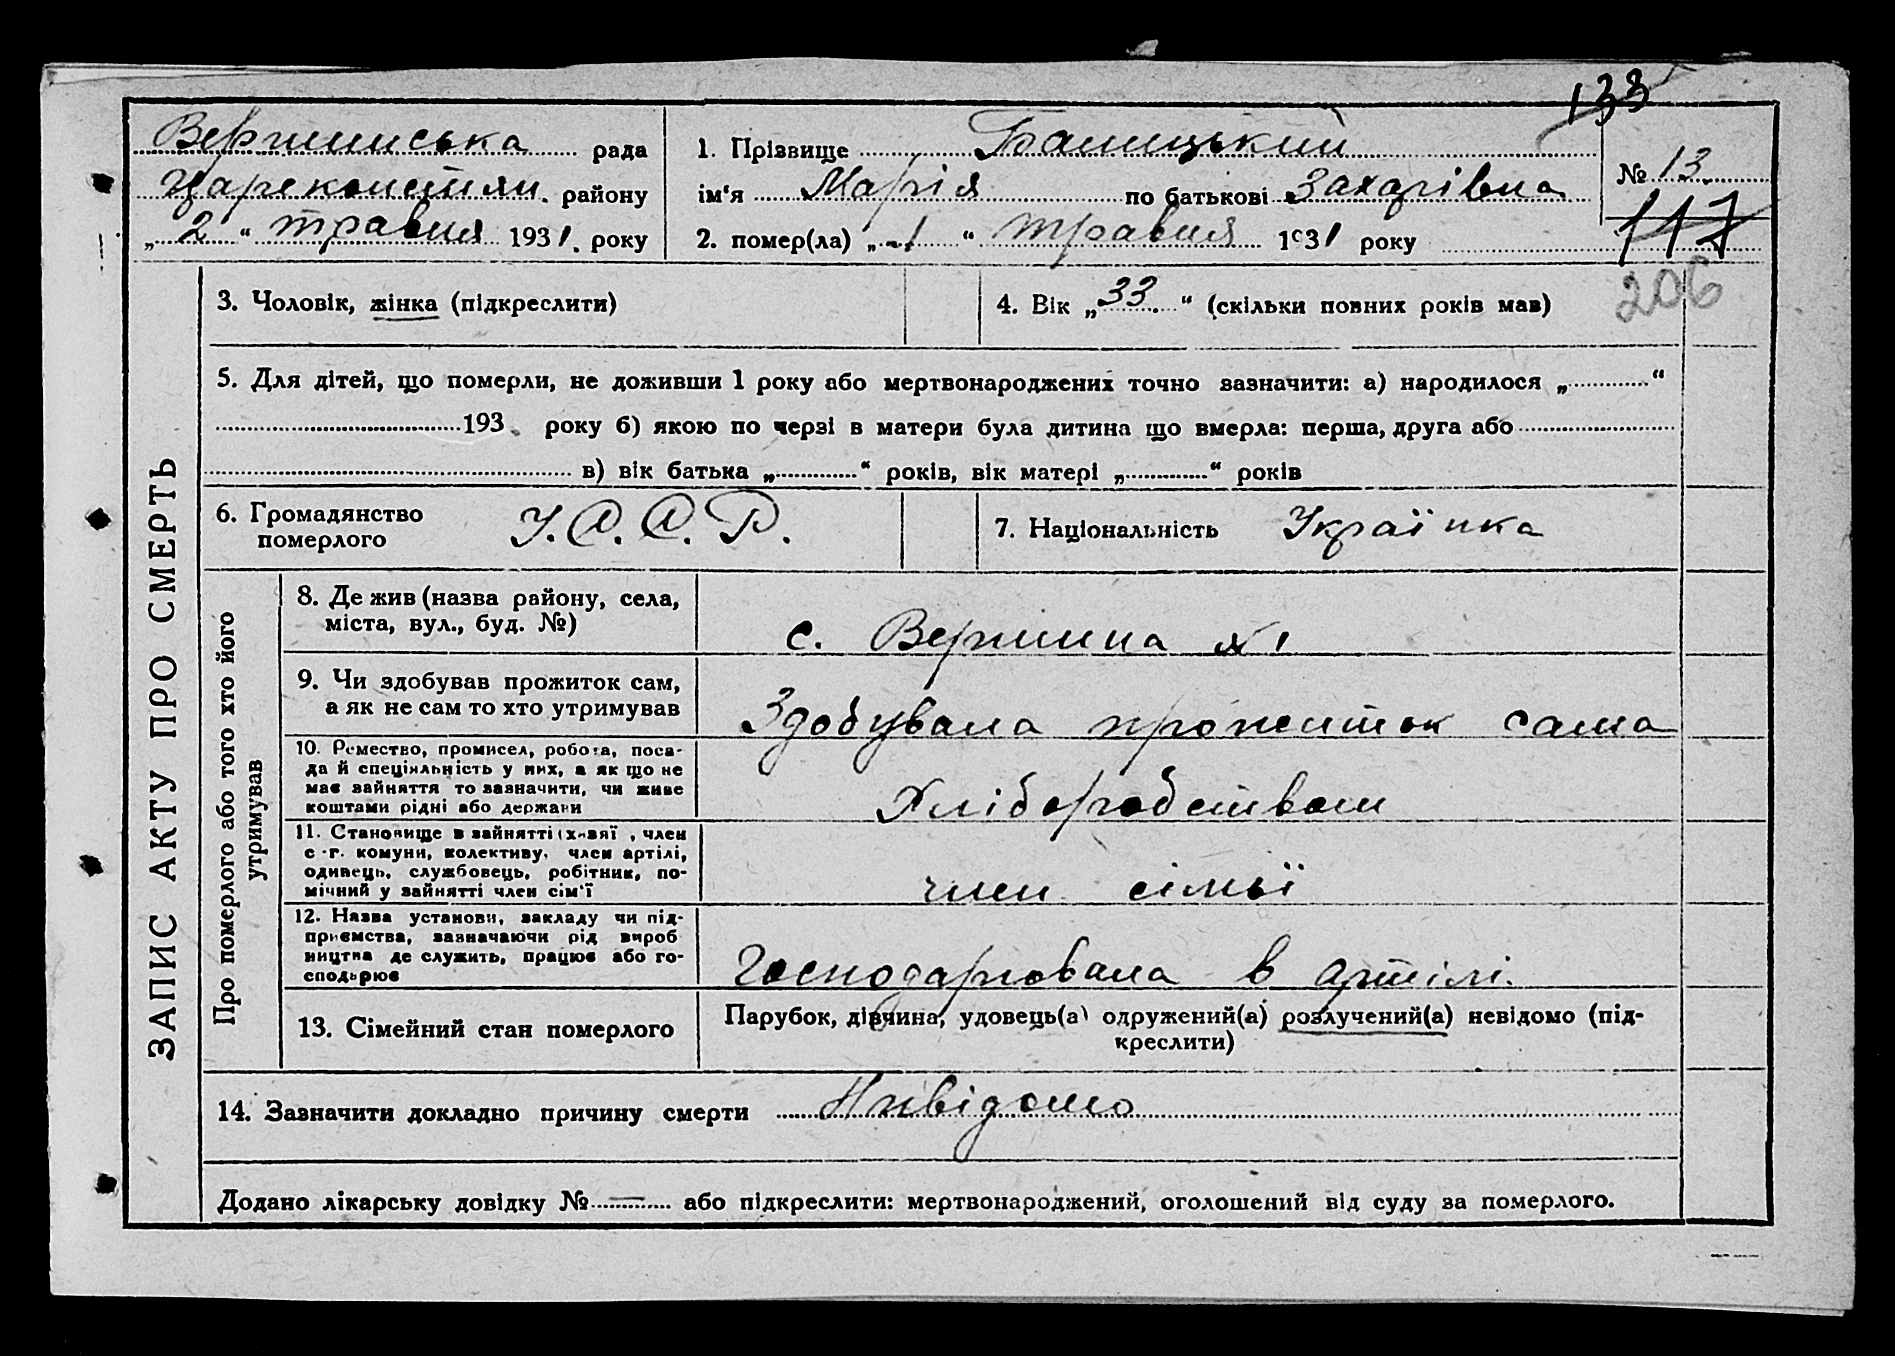 133
Вершинська рада
Цареконстян. району
„ 2 “ травня 1931. року
1. Прізвище Баницький
ім'я Марія по батькові Захарівна
2. помер(ла) „ 1 “ травня 1931 року
№ 13
117
206
ЗАПИС АКТУ ПРО СМЕРТЬ
3. Чоловік, жінка (підкреслити)
4. Вік „ 33 “ (скільки повних років мав)
5. Для дітей, що померли, не доживши 1 року або мертвонароджених точно зазначити: а) народилося „ “
193 року б) якою по черзі в матери була дитина що вмерла: перша, друга або
в) вік батька „ “ років, вік матері „ “ років
6. Громадянство
померлого
У.С.С.Р.
7. Національність Українка
Про померлого або того хто його
утримував
8. Де жив (назва району, села,
міста, вул., буд. №)
с. Вершина №1
9. Чи здобував прожиток сам,
а як не сам то хто утримував
Здобувала прожиток сама
10. Ремество, промисел, робота, поса-
да й спеціяльність у них, а як що не
має зайняття то зазначити, чи живе
коштами рідні або держави
Хліборобством
11. Становище в зайнятті (хазяї, член
с.-г. комуни, колективу, член артілі,
одинець, службовець, робітник, по-
мічний у зайнятті член сім'ї
член сімьї
12. Назва установи, закладу чи під-
приємства, зазначаючи рід вироб
ництва де служить, працює або го-
сподарює
Господарювала в артілі.
13. Сімейний стан померлого
Парубок, дівчина, удовець(а) одружений(а) розлучений(а) невідомо (під-
креслити)
14. Зазначити докладно причину смерти Нивідомо
Додано лікарську довідку № — або підкреслити: мертвонароджений, оголошений від суду за померлого.